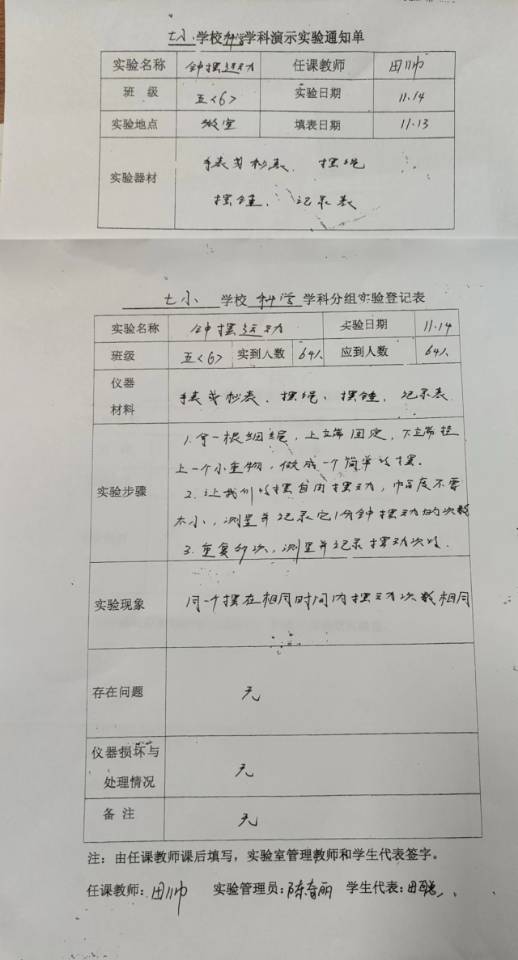 七小 学校 科学 学科演示实验通知单
实验名称 钟摆运动 任课教师 田帅
班 级 五<6> 实验日期 11.14
实验地点 教室 填表日期 11.13
实验器材 手表或秒表、摆绳
摆锤、记录表
七小 学校 科学 学科分组实验登记表
实验名称 钟摆运动 实验日期 11.14
班级 五<6> 实到人数 64人 应到人数 64人
仪器
材料 手表或秒表、摆绳、摆锤、记录表
1.拿一根细绳，上端固定，下端挂
上一个小重物，做成一个简单的摆.
实验步骤 2.让我们的摆自由摆动，幅度不要
太小，测量并记录它1分钟摆动的次数
3.重复 次，测量并记录摆动次数.
实验现象 同一个摆在相同时间内摆动次数相同
存在问题 无
仪器损坏与
处理情况 无
备 注 无
注：由任课教师课后填写，实验室管理教师和学生代表签字。
任课教师：田帅 实验管理员：陈春丽 学生代表：田